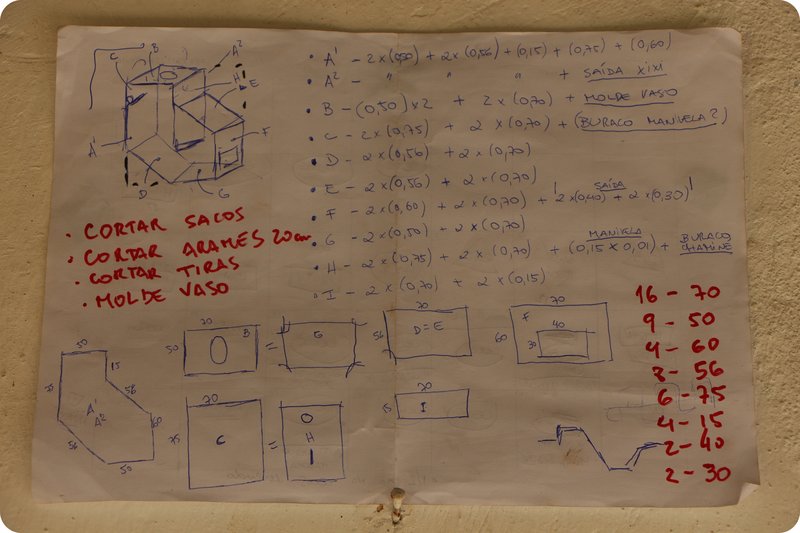 C
B
A²
H
E
A¹
F
D
G
• A¹ - 2×(0,50) + 2×(0,56) + (0,15) + (0,75) + (0,60)
• A² - " " " + SAÍDA XIXI
• B - (0,50)×2 + 2×(0,70) + MOLDE VASO
• C - 2×(0,75) + 2×(0,70) + (BURACO MANIVELA?)
• D - 2×(0,56) + 2×(0,70)
• E - 2×(0,56) + 2×(0,70)
• F - 2×(0,60) + 2×(0,70) + '2×(0,40) + 2×(0,30)'
SAÍDA
• G - 2×(0,50) + 2×(0,70)
• H - 2×(0,75) + 2×(0,70) + (0,15×0,01) + BURACO CHAMINÉ
MANIVELA
• I - 2×(0,70) + 2×(0,15)
• CORTAR SACOS
• CORTAR ARAMES 20cm
• CORTAR TIRAS
• MOLDE VASO
16 - 70
9 - 50
4 - 60
8 - 56
6 - 75
4 - 15
2 - 40
2 - 30
50
15
75
56
A¹
A²
60
56
50
70
50
B
=
G
70
56
D=E
70
60
F
40
30
70
75
C
=
H
70
15
I